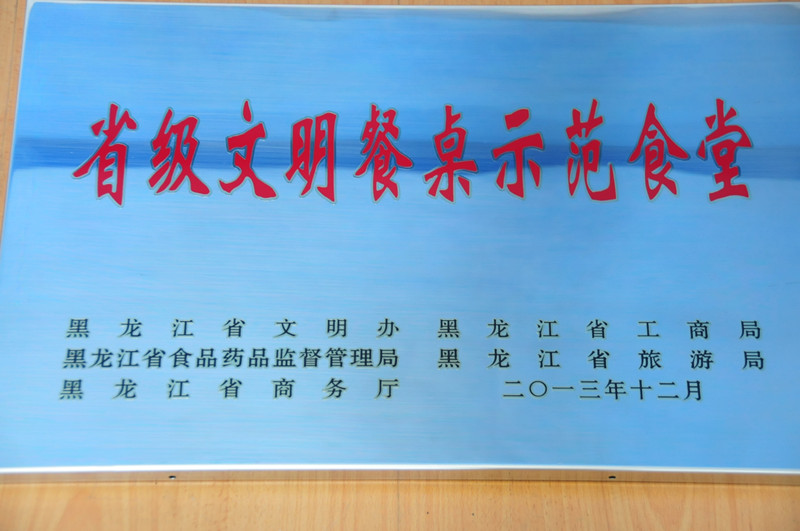 省级文明餐桌示范食堂
黑龙江省文明办 黑龙江省工商局
黑龙江省食品药品监督管理局 黑龙江省旅游局
黑龙江省商务厅 二〇一三年十二月